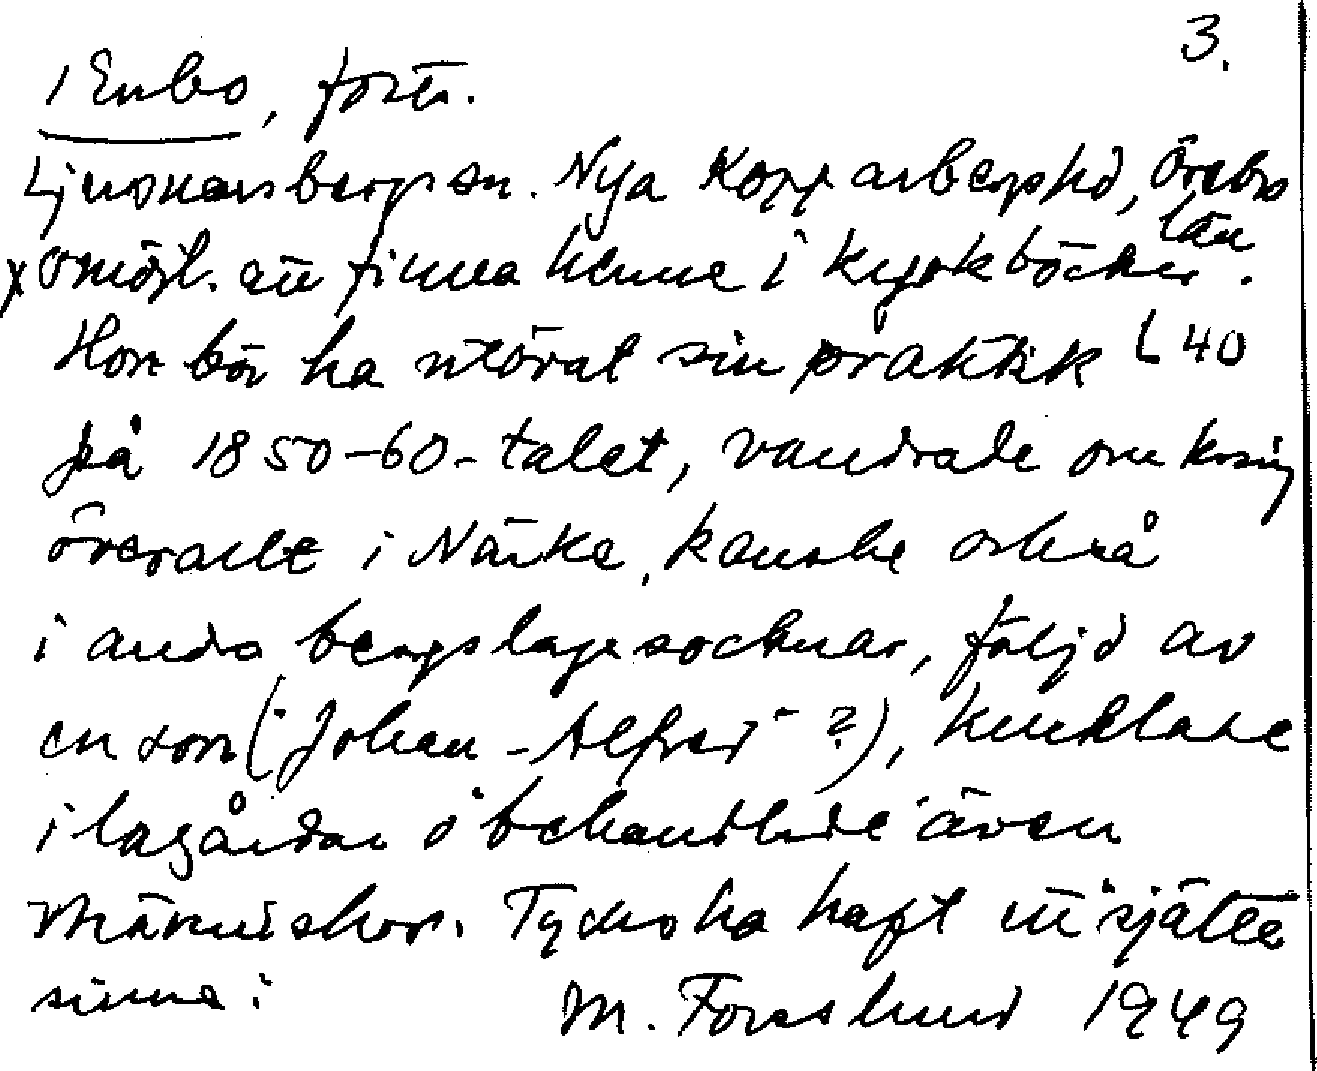 3.
i Enbo, forts.
Ljusnarsbergs sn. Nya Kopparbergs hd, Örebro
län.
x Omöjl. att finna henne i kyrkböcker
Hon bör ha utövat sin praktik L 40
på 1850-60-talet, vandrade omkring
överallt i Närke, kanske också
i andra bergslagssocknar, följd av
en son ("Johan-Alfred"?), kurerade
i lagårdar o behandlade även
människor. Tycks ha haft ett "sjätte
sinne i
M. Forslund 1949